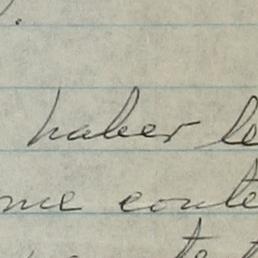 haber le
me conte